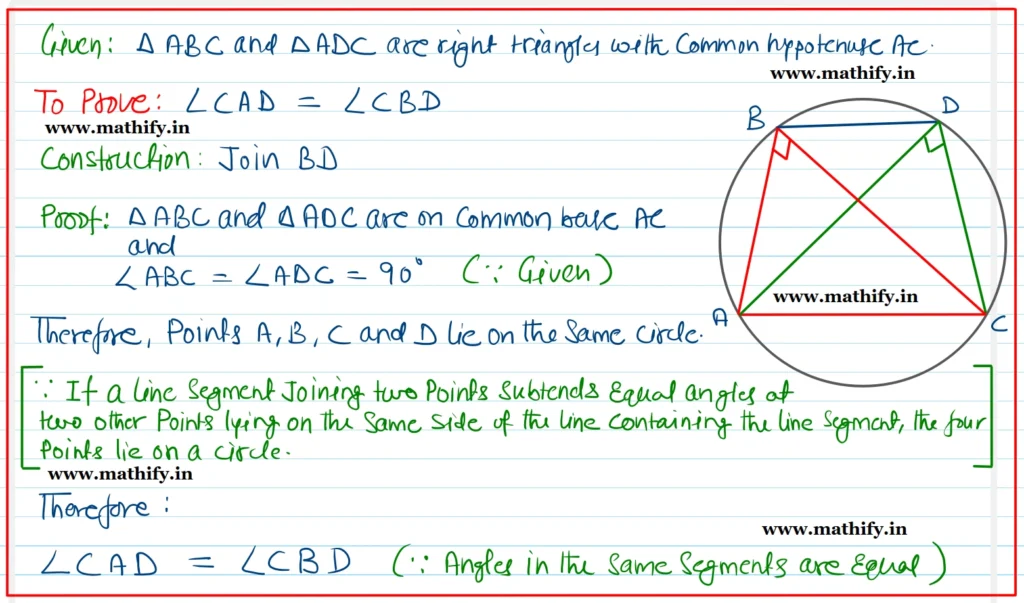 Given: Δ ABC and Δ ADC are right triangles with Common hypotenuse AC.
www.mathify.in
To Prove: ∠CAD = ∠CBD
www.mathify.in
Construction: Join BD
B
D
Proof: Δ ABC and Δ ADC are on Common base AC
and
∠ABC = ∠ADC = 90° (∵ Given)
www.mathify.in
A
C
Therefore, Points A, B, C and D lie on the Same circle.
[∵ If a line Segment Joining two Points Subtends Equal angles at
two other Points lying on the Same Side of the line Containing the line Segment, the four
Points lie on a circle.]
www.mathify.in
Therefore:
www.mathify.in
∠CAD = ∠CBD (∵ Angles in the Same Segments are Equal)